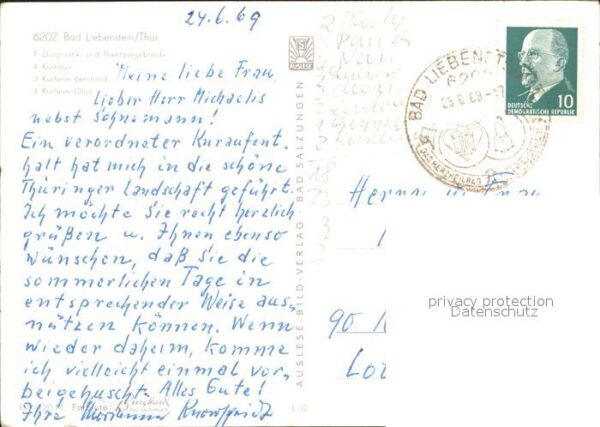 24.6.69
6202 Bad Liebenstein/Thür.
1 Diagnostik- und Therapiegebäude
2 Kurhaus
3 Kurheim Bernhard
4 Kurheim Olga
Meine liebe Frau,
Lieber Herr Michaelis
nebst Sohnemann!
Ein verordneter Kuraufent-
halt hat mich in die schöne
Thüringer Landschaft geführt.
Ich möchte Sie recht herzlich
grüßen u. Ihnen ebenso
wünschen, daß Sie die
sommerlichen Tage in
entsprechender Weise aus-
nützen können. Wenn
wieder daheim, komme
ich vielleicht einmal vor-
beigehuscht. Alles Gute!
Ihre Marianne
AUSLESE-BILD-VERLAG · BAD SALZUNGEN
BAD LIEBENST
DEUTSCHE
DEMOKRATISCHE REPUBLIK
10
Herrn
90
privacy protection
Datenschutz